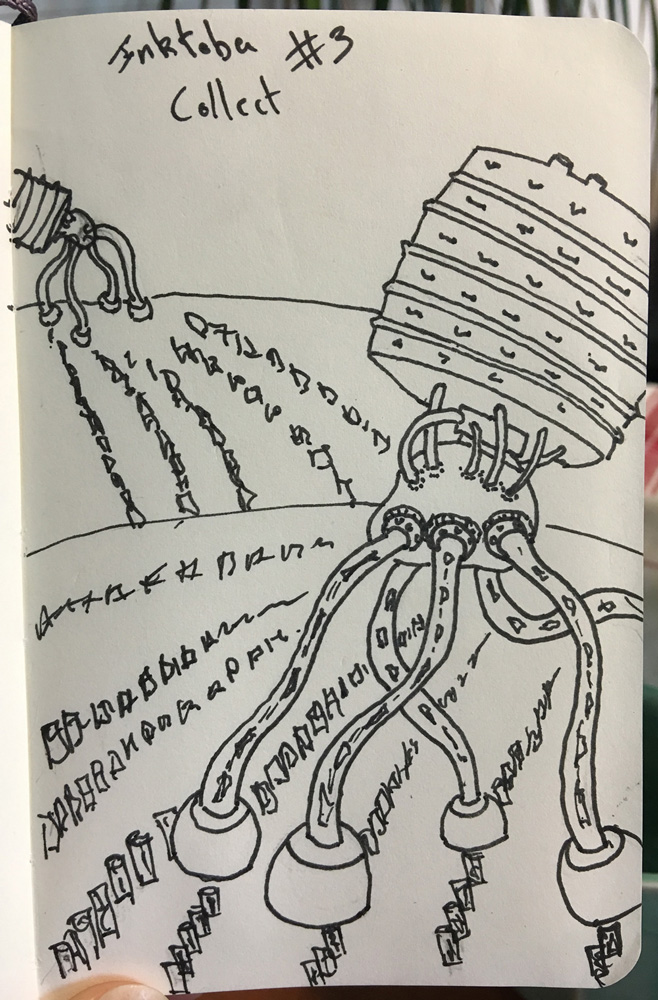 Inktoba #3
Collect